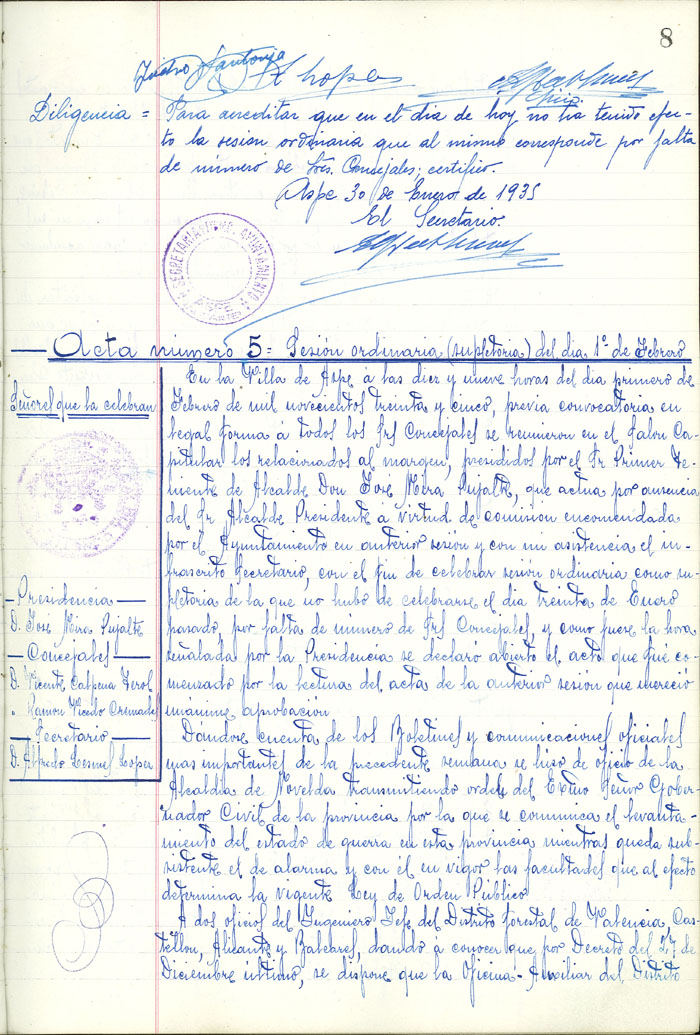 8
Diligencia = Para acreditar que en el dia de hoy no ha tenido efec-
to la sesion ordinaria que al mismo corresponde por falta
de número de Srs. Concejales; certifico.
Aspe 30 de Enero de 1935
El Secretario.
Acta numero 5 = Sesión ordinaria (supletoria) del dia 1º de Febrero
Señores que la celebran
—Presidencia—
D. Jose Mira Pujalte
—Concejales—
D. Vicente Calpena Terol
" Ramon Vicedo Cremades
—Secretario—
D. Alfredo Lesmes Lopez
En la Villa de Aspe á las diez y nueve horas del dia primero de
Febrero de mil novecientos treinta y cinco, previa convocatoria en
legal forma á todos los Srs Concejales se reunieron en el Salon Ca-
pitular los relacionados al margen, presididos por el Sr Primer Te-
niente de Alcalde Don Jose Mira Pujalte, que actua por ausencia
del Sr Alcalde Presidente á virtud de comision encomendada
por el Ayuntamiento en anterior sesión y con mi asistencia el in-
frascrito Secretario, con el fin de celebrar sesión ordinaria como su-
pletoria de la que no hubo de celebrarse el dia treinta de Enero
pasado, por falta de número de Srs Concejales, y como fuese la hora
señalada por la Presidencia se declaro abierto el acto que fué co-
menzado por la lectura del acta de la anterior sesión que mereció
unanime aprobacion
Dandose cuenta de los Boletines y comunicaciones oficiales
mas importantes de la precedente semana se hizo de oficio de la
Alcaldia de Novelda transmitiendo orden del Exmo Señor Gober-
nador Civil de la provincia por la que se comunica el levanta-
miento del estado de guerra en esta provincia mientras queda sub-
sistente el de alarma y con él en vigor las facultades que al efecto
determina la vigente Ley de Orden Público
A dos oficios del Ingeniero Jefe del Distrito forestal de Valencia, Cas-
tellon, Alicante y Baleares, dando á conocer que por Decreto del 27 de
Diciembre ultimo, se dispone que la Oficina-Auxiliar del Distrito